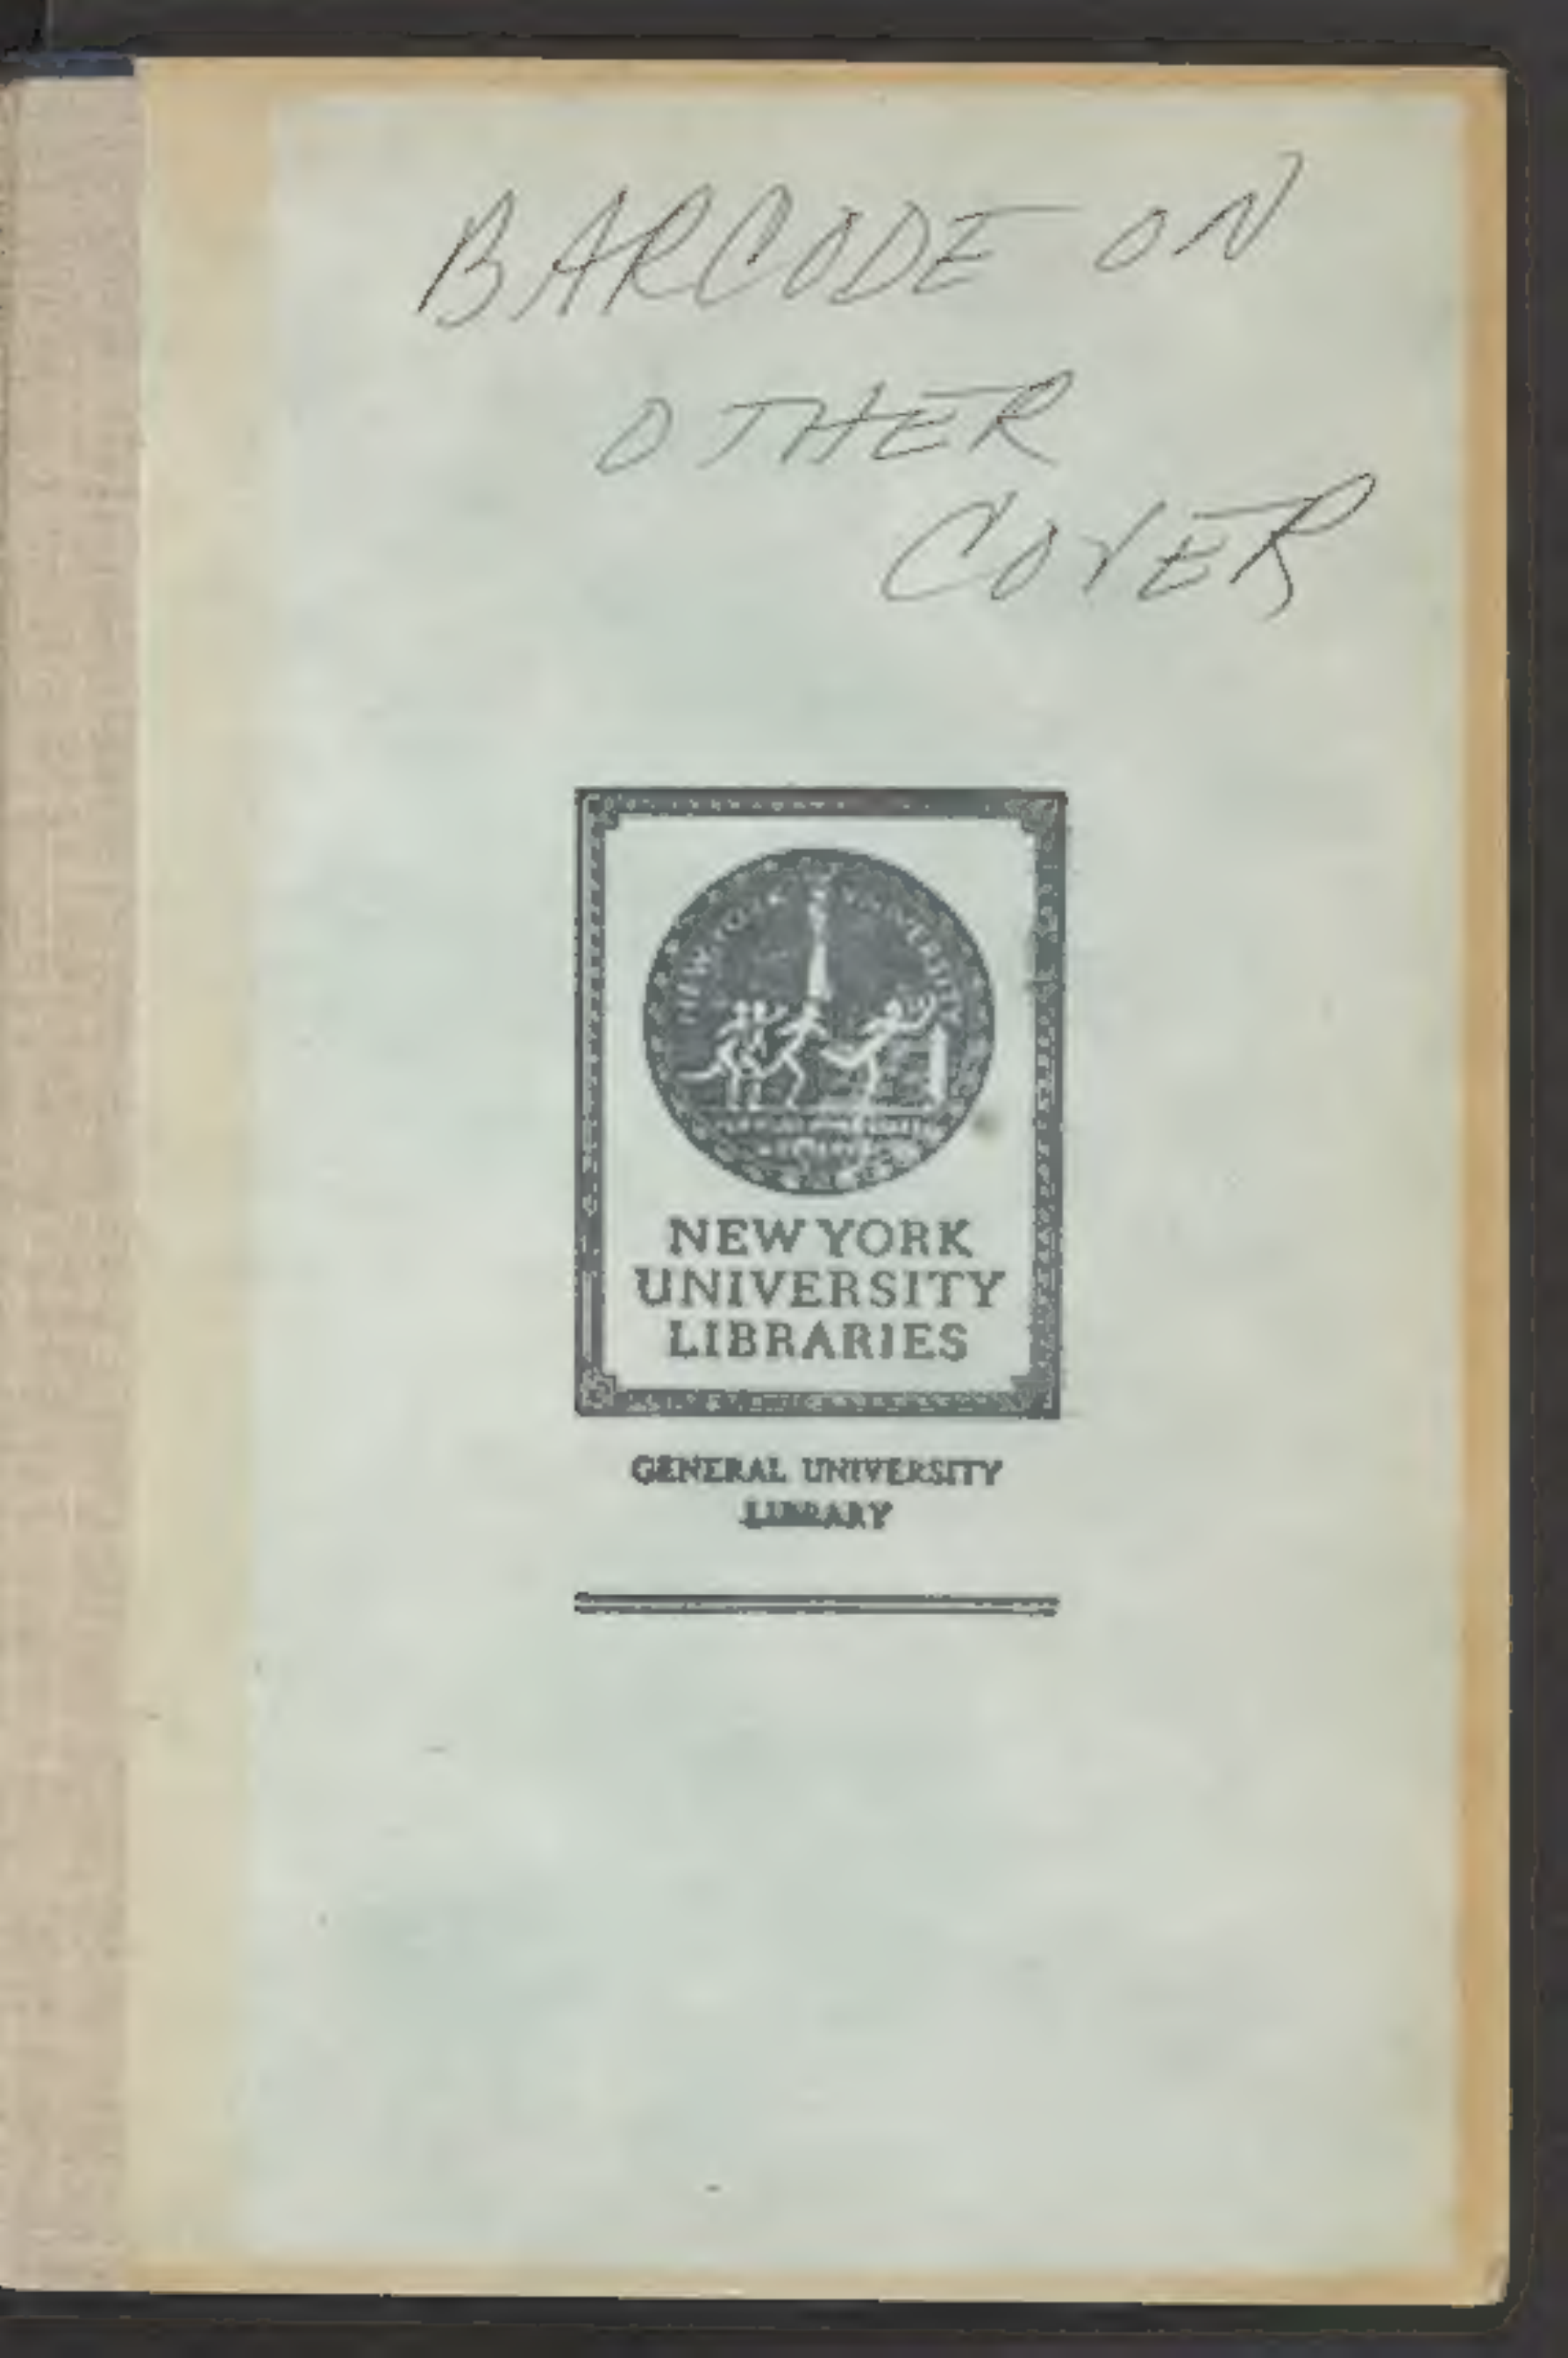 BARCODE ON
OTHER
COVER
NEW YORK UNIVERSITY
NEW YORK
UNIVERSITY
LIBRARIES
GENERAL UNIVERSITY
LIBRARY